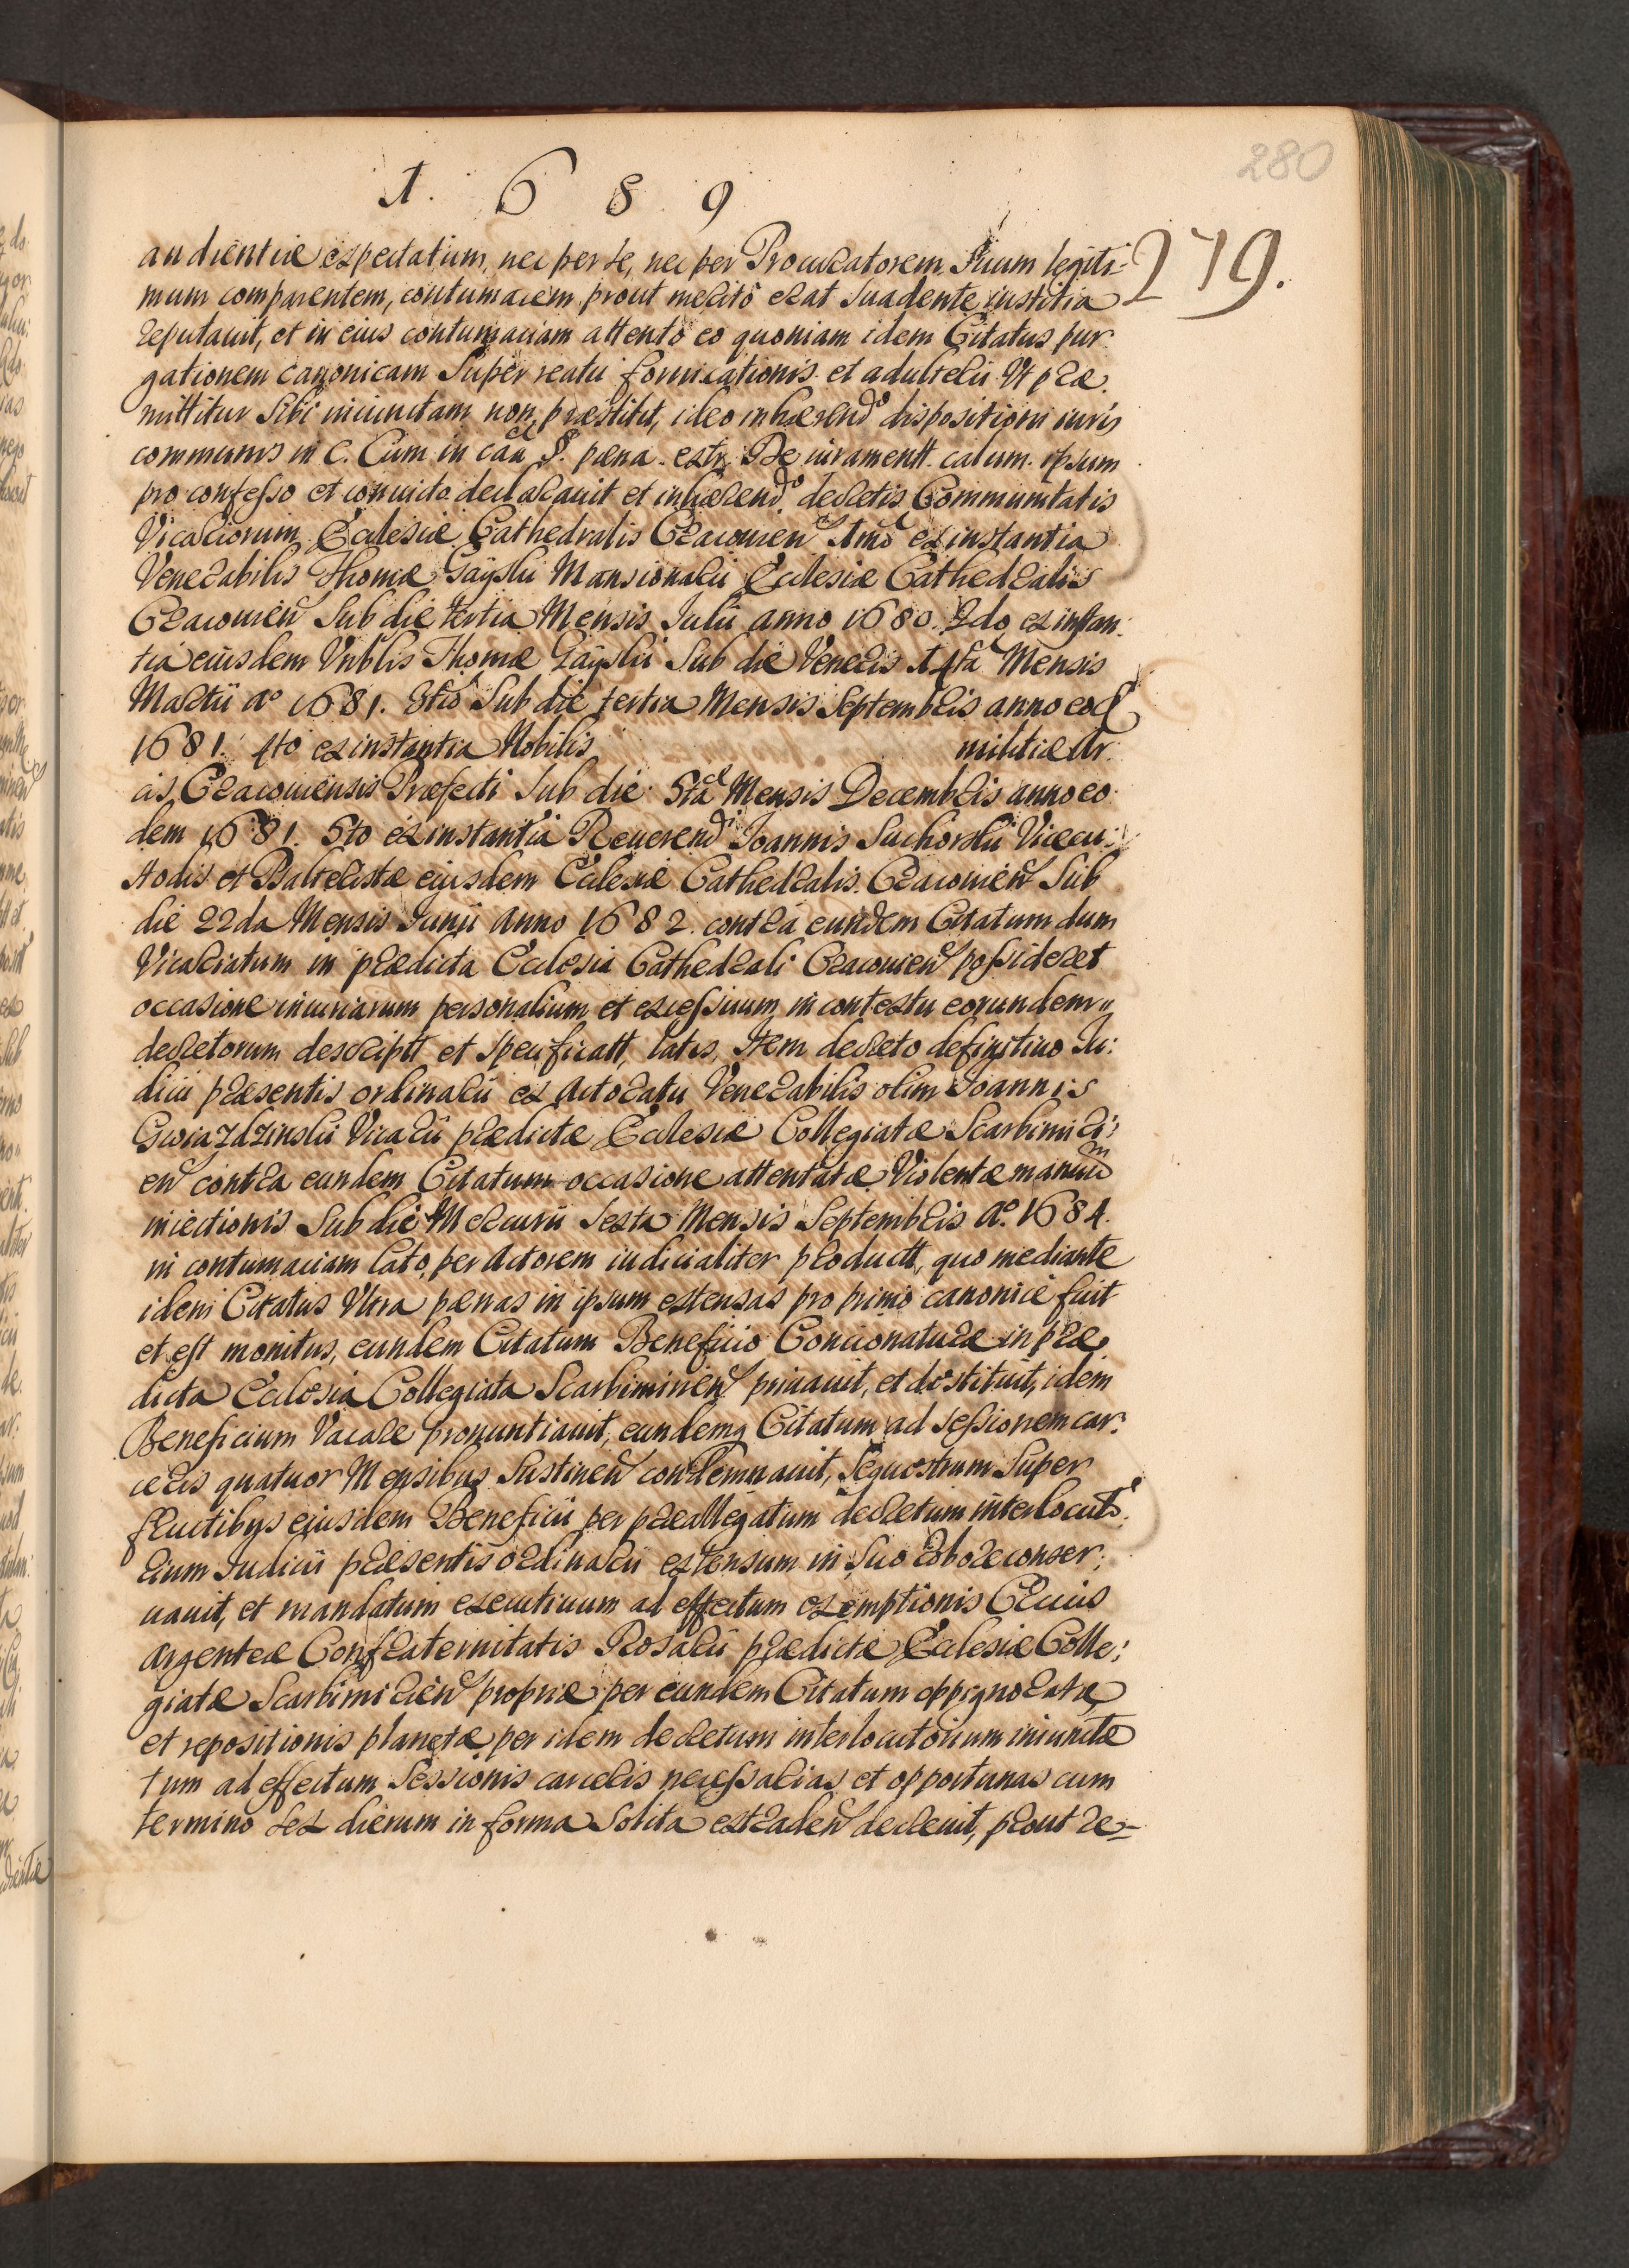 280
1. 6 8 9
279.
audientiæ expectatum, nec per se, nec per Procuratorem Suum legiti:
mum comparentem, contumacem prout meritò erat Suadente iustitia
reputauit, et in eius contumaciam attentò eo quoniam idem Citatus pur:
gationem canonicam Super reatu fornicationis et adulterii Vt præ:
mittitur Sibi iniunctam non præstitit, ideo inhærendo dispositioni iuris
communis in C. Cum in cãa §. pæna. extr. De iuramentt. calum. ipsum
pro confesso et conuicto declarauit et inhærendo decretis Communitatis
Vicariorum Ecclesiæ Cathedralis Cracouien̄ 1mo ex instantia
Venerabilis Thomæ Gayski Mansionarii Ecclesiæ Cathedralis
Cracouien̄ Sub die tertia Mensis Iulii anno 1680. 2do ex instan:
tia eiusdem Vnblis Thomæ Gayski Sub die Veneris 14ta Mensis
Martii ao 1681. 3tio Sub die tertia Mensis Septembris anno eod
1681. 4to ex instantia Nobilis militiæ Ar:
cis Cracouiensis Præfecti Sub die 5ta Mensis Decembris anno eo:
dem 1681. 5to ex instantia Reuerendi Ioannis Suchorski Vicecu:
stodis et Psalteristæ eiusdem Ecclesiæ Cathedralis Cracouien̄ Sub
die 22da Mensis Iunii Anno 1682. contra eundem Citatum dum
Vicariatum in prædicta Ecclesia Cathedrali Cracouien̄ possideret
occasione iniuriarum personalium et excessuum in contextu eorundem
decretorum descriptt et Specificatt, latis, Item decreto definitiuo Iu:
dicii præsentis ordinarii ex Actoratu Venerabilis olim Ioannis
Gwiazdzinski Vicarii prædictæ Ecclesiæ Collegiatæ Scarbimiri:
en̄ contra eundem Citatum occasione attentatæ Violentæ manuum
iniectionis Sub die Mercurii Sexta Mensis Septembris Ao. 1684.
in contumaciam lato, per Actorem iudicialiter productt, quo mediante
idem Citatus Vltra pænas in ipsum extensas pro primo canonicè fuit
et est monitus, eundem Citatum Beneficio Concionaturæ in præ:
dicta Ecclesia Collegiata Scarbimirien̄ priuauit, et destituit, idem
Beneficium Vacare pronuntiauit, eundemq Citatum ad sessionem car:
ceris quatuor Mensibus Sustinen̄ condemnauit, Sequestrum Super
fructibus eiusdem Beneficii per præallegatum decretum interlocuto:
rium Iudicii præsentis ordinarii extensum in Suo robore conser:
uauit, et mandatum executiuum ad effectum exemptionis Crucis
argenteæ Confraternitatis Rosarii prædictæ Ecclesiæ Colle:
giatæ Scarbimirien̄ propriæ per eundem Citatum oppignoratæ
et repositionis planetæ per idem decretum interlocutorium iniunctæ
tum ad effectum Sessionis carceris necessarias et opportunas cum
termino Sex dierum in forma Solita extraden̄ decreuit, prout re=